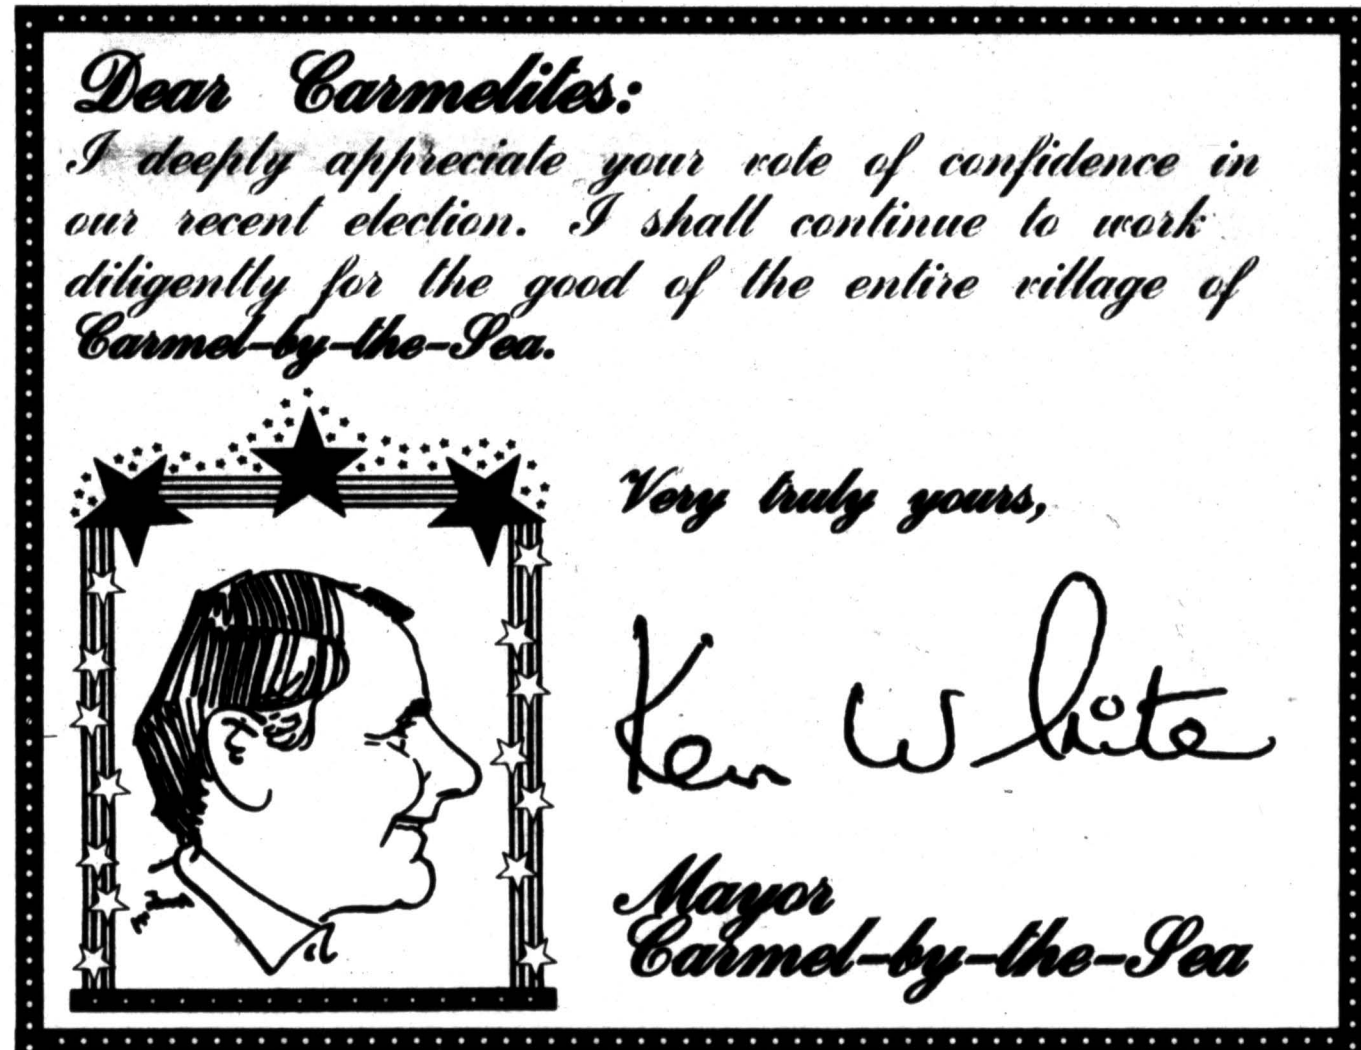 Dear Carmelites:
I deeply appreciate your vote of confidence in
our recent election. I shall continue to work
diligently for the good of the entire village of
Carmel-by-the-Sea.
Very truly yours,
Ken White
Mayor
Carmel-by-the-Sea